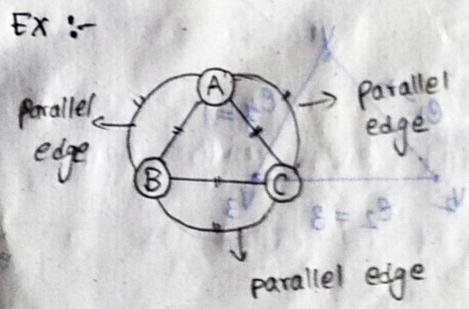 Ex :-
A
parallel
edge
parallel
edge
B
C
parallel edge